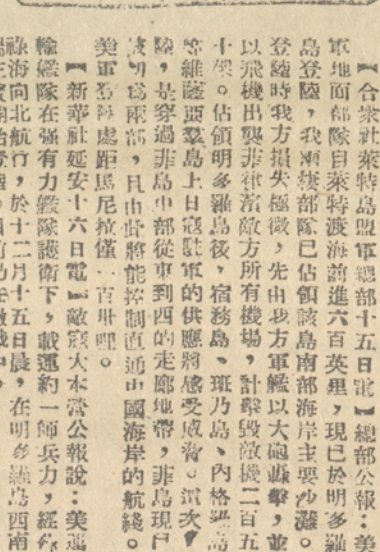 【合衆社萊特島總部十五日電】總部公報：美
軍地面部隊自萊特渡海前進六百英里，現已於明多羅
島登陸，我兩棲部隊已佔領該島南部海岸主要沙灘。
登陸時我方損失極微，先由我方軍艦以大砲轟擊，並
以飛機出襲菲律濱敵方所有機場，計擊毀敵機二百五
十架。佔領明多羅島後，宿務島、班乃島、內格
維薩亞羣島上日寇駐軍的供應將感受威脅。這次
陸，是穿過菲島中部從東到西的走廊地帶，菲島現已
被切爲兩部，且由此將能控制直通中國海岸的航綫。
美軍登陸處距馬尼拉僅一百卅哩。
【新華社延安十六日電】敵寇大本營公報說：美運
輸艦隊在強有力艦隊護衛下，載運約一師兵力，經
祿海向北航行，於十二月十五日晨，在明多羅島西南